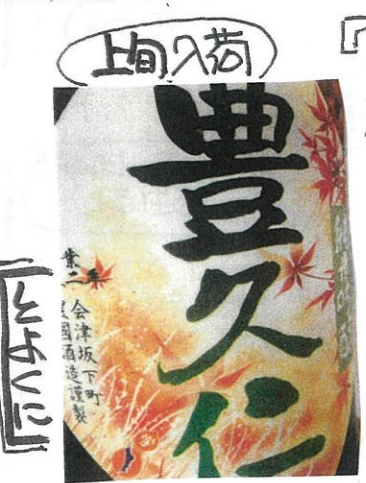 上旬入荷
豊久仁
会津坂下町
豊国酒造謹製
『とよくに』